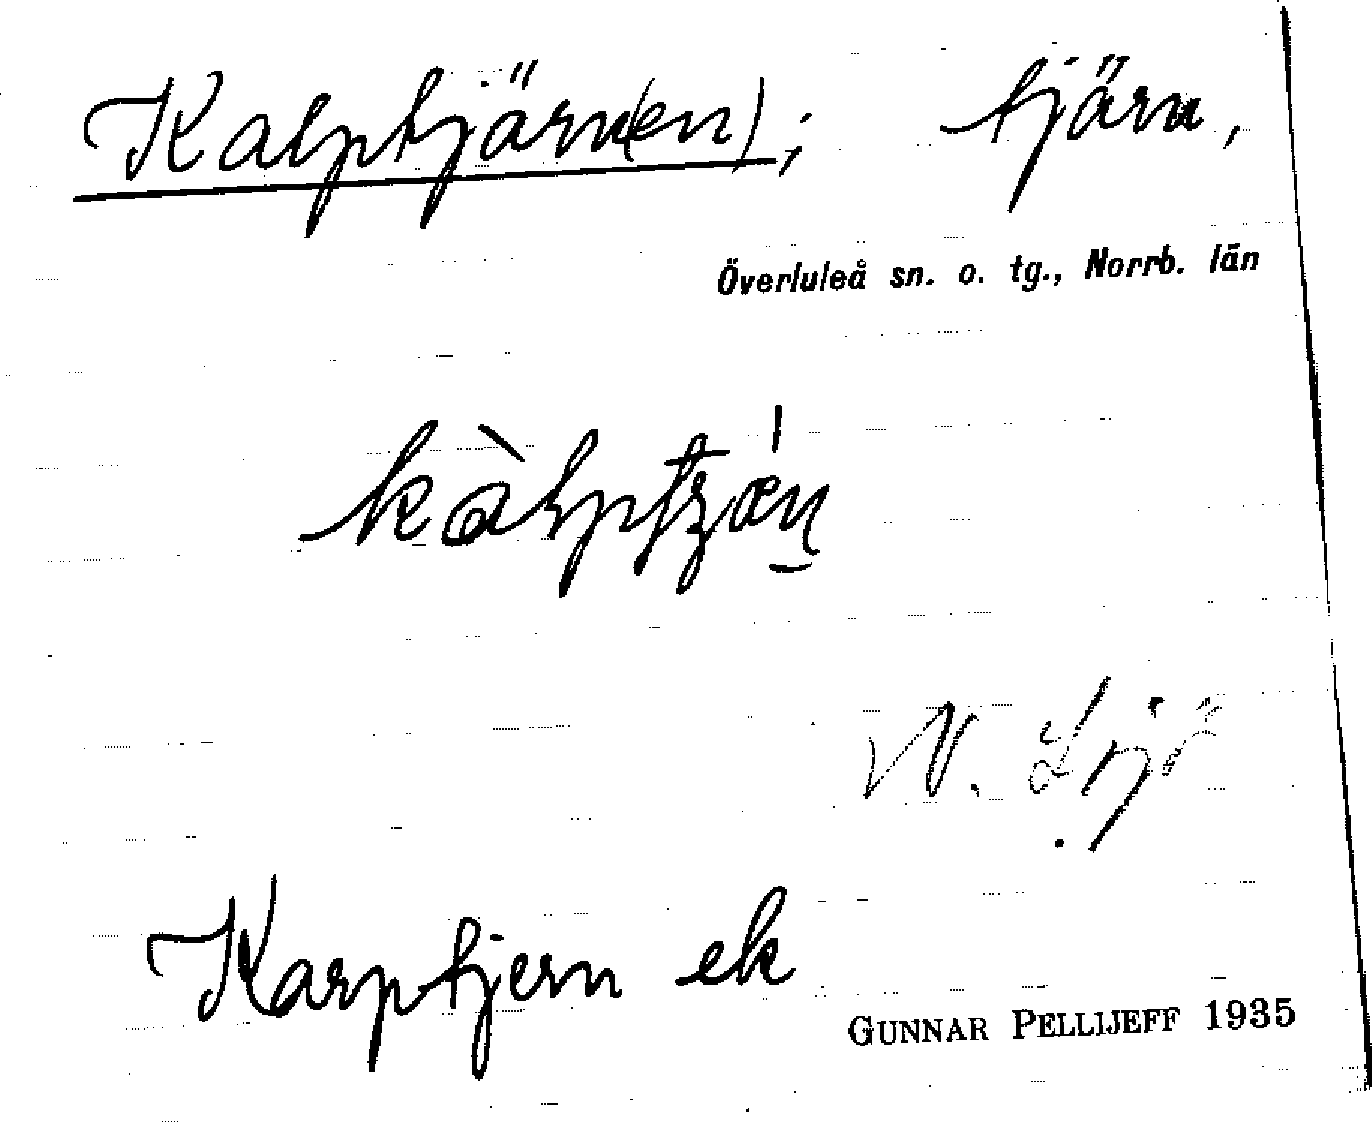 Kalptjärn(en); tjärn,
Överluleå sn. o. tg., Norrb. län
N.
Karptjern ek
GUNNAR PELLIJEFF 1935